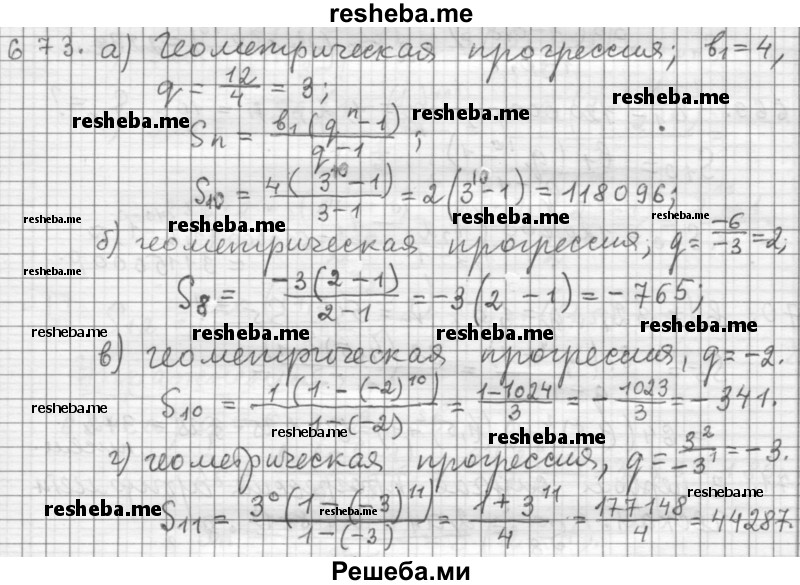 resheba.me
673. а) Геометрическая прогрессия; в₁ = 4,
q = 12/4 = 3;
resheba.me
resheba.me resheba.me
Sn = в₁(qⁿ - 1)/q - 1 ;
S₁₀ = 4(3¹⁰ - 1)/3 - 1 = 2(3¹⁰ - 1) = 118096;
resheba.me resheba.me resheba.me resheba.me
б) геометрическая прогрессия, q = -6/-3 = 2;
resheba.me
S₈ = -3(2 - 1)/2 - 1 = -3(2 - 1) = -765;
resheba.me resheba.me resheba.me resheba.me
в) геометрическая прогрессия, q = -2.
S₁₀ = 1(1 - (-2)¹⁰)/1 - (-2) = 1 - 1024/3 = - 1023/3 = - 341.
resheba.me resheba.me resheba.me
г) геометрическая прогрессия, q = 3²/-3¹ = -3.
resheba.me resheba.me resheba.me
S₁₁ = 3⁰(1 - (-3)¹¹)/1 - (-3) = 1 + 3¹¹/4 = 177148/4 = 44287.
Решеба.ми